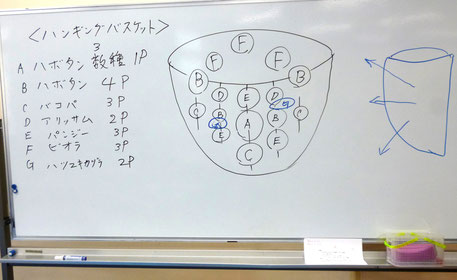 <ハンギングバスケット>
3
A ハボタン 数種 1P
B ハボタン 4P
C バコパ 3P
D アリッサム 2P
E パンジー 3P
F ビオラ 3P
G ハツユキカツラ 2P
F
F F
B B
D E D G
C B A B C
G E E
C